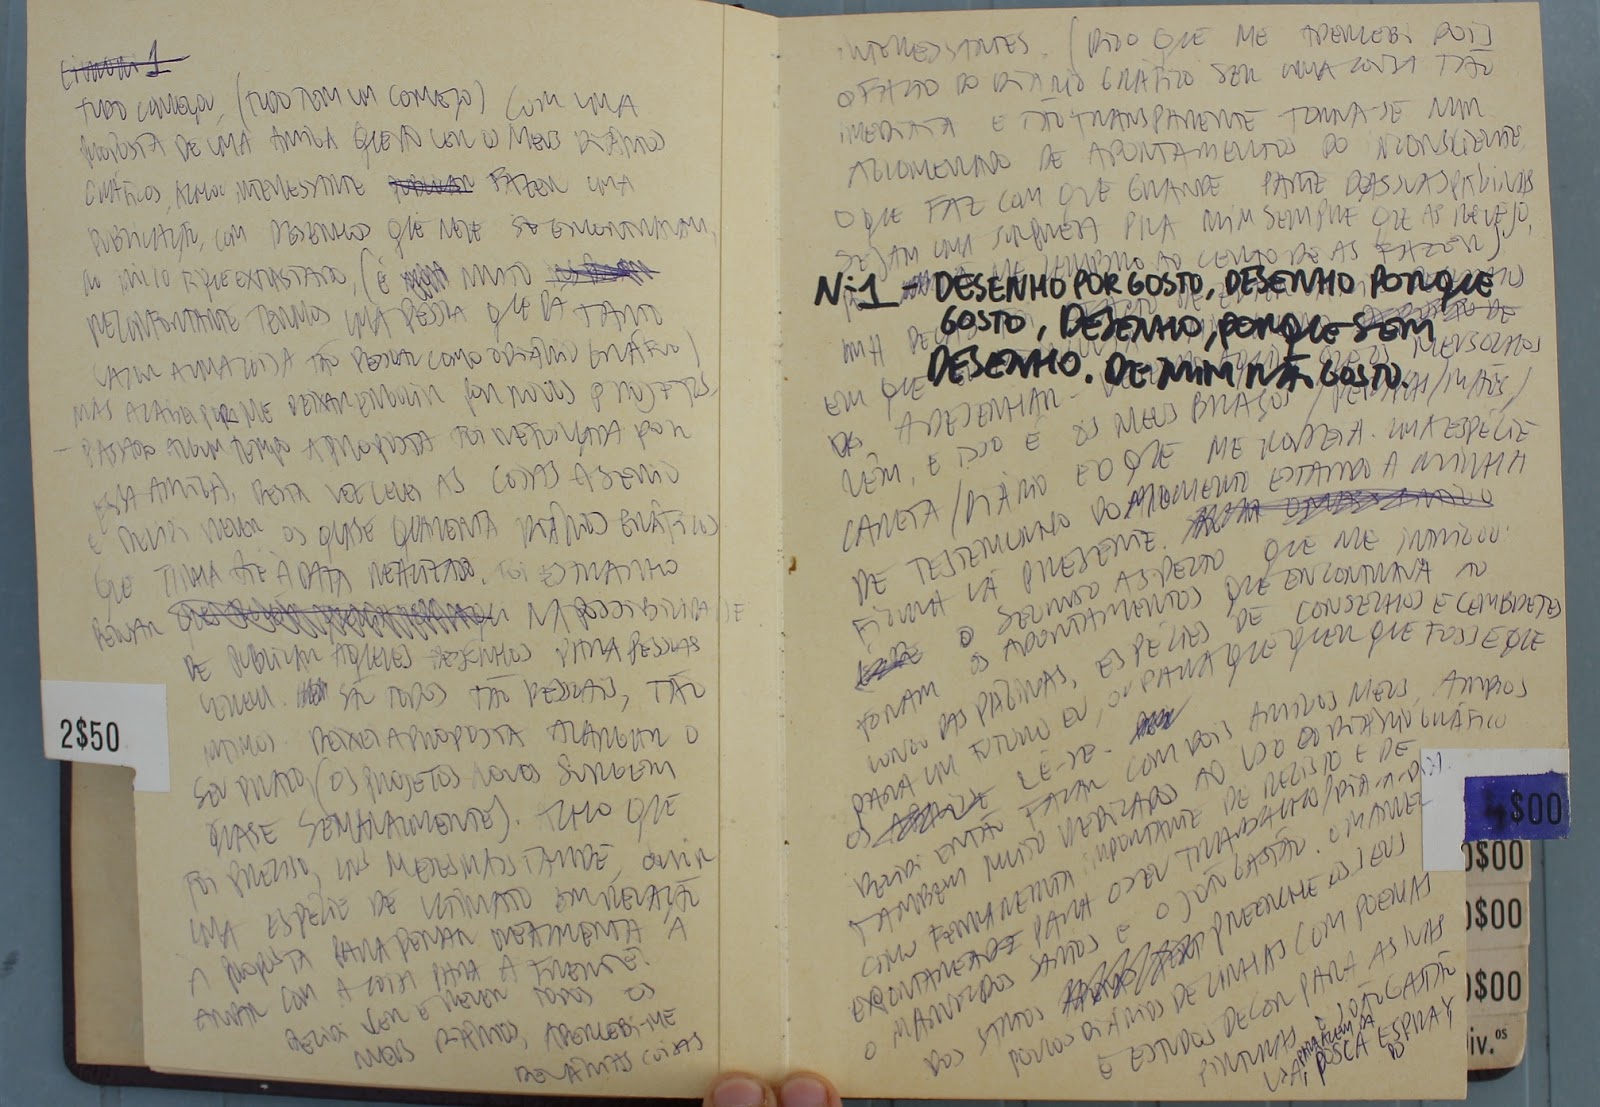 TUDO COMEÇOU, (TUDO TEM UM COMEÇO) COM UMA
PROPOSTA DE UMA AMIGA QUE AO VER OS MEUS DIÁRIOS
GRÁFICOS, ACHOU INTERESSANTE FAZER UMA
PUBLICAÇÃO, COM DESENHOS QUE NELE SE ENCONTRAVAM,
NO INICIO FIQUEI ENTUSIASTADO, (É MUITO
RECONFORTANTE TERMOS UMA PESSOA QUE DÁ TANTO
VALOR A UMA COISA TÃO PESSOAL COMO O DIÁRIO GRÁFICO)
MAS ACABEI POR ME DEIXAR ENGOLIR POR NOVOS PROJETOS
- PASSADO ALGUM TEMPO A PROPOSTA FOI REFORÇADA POR
ESSA AMIGA), DESTA VEZ LEVEI AS COISAS A SERIO
E DECIDI REVER OS QUASE QUARENTA DIÁRIOS GRÁFICOS
QUE TINHA ATÉ À DATA REALIZADO. FOI ESTRANHO
PENSAR NA POSSIBILIDADE
DE PUBLICAR AQUELES DESENHOS PARA PESSOAS
VEREM. SÃO TODOS TÃO PESSOAIS, TÃO
INTIMOS. DEIXEI A PROPOSTA
SEU PRAZO (OS PROJETOS NOVOS SURGEM
QUASE SEMANALMENTE). ACHO QUE
FOI PRECISO, UNS MESES MAIS TARDE, OUVIR
UMA ESPÉCIE DE ULTIMATO EM RELAÇÃO
À PROPOSTA PARA PENSAR
ANDAR COM A COISA PARA A FRENTE.
DECIDI VER E REVER TODOS OS
MEUS DIÁRIOS, APERCEBI-ME
DE VÁRIAS COISAS
2$50
INTERESSANTES. (DIGO QUE ME APERCEBI POIS
O FACTO DO DIÁRIO GRÁFICO SER UMA COISA TÃO
IMEDIATA E TÃO TRANSPARENTE TORNA-SE NUM
AGLOMERADO DE APONTAMENTOS DO INCONSCIENTE,
O QUE FAZ COM QUE GRANDE PARTE DAS SUAS PÁGINAS
SEJAM UMA SURPRESA PARA MIM SEMPRE QUE AS REVEJO,
ME LEMBRO AO CERTO DE AS FAZER)
Nº1 - DESENHO POR GOSTO, DESENHO PORQUE
GOSTO, DESENHO, PORQUE SEM
DESENHO. DE MIM NÃO GOSTO.
EM QUE MEUS OLHOS
A DESENHAR
VÊM, E ISSO É OS MEUS BRAÇOS / PERNAS / MÃOS /
CANETA / DIÁRIO E O QUE ME RODEIA. UMA ESPÉCIE
DE TESTEMUNHO DO MOMENTO ESTANDO A MINHA
FIGURA LÁ PRESENTE.
O SEGUNDO ASPECTO QUE ME INTRIGOU
FORAM OS APONTAMENTOS QUE ENCONTRAVA AO
LONGO DAS PÁGINAS, ESPÉCIES DE CONSELHOS E LEMBRETES
PARA UM FUTURO EU, OU PARA QUE QUER QUE FOSSE QUE
OS LÊ-SE.
DECIDI ENTÃO FALAR COM DOIS AMIGOS MEUS, AMBOS
TAMBÉM MUITO DEDICADOS AO USO DO DIÁRIO GRÁFICO
COMO FERRAMENTA IMPORTANTE DE REGISTO E DE
EXPONTANEADADE PARA O SEU TRABALHO/DIA-A-DIA.
O MANUEL DOS SANTOS E O JOÃO GASTÃO. O MANUEL
DOS SANTOS PREENCHE OS SEUS
DIÁRIOS DE LINHAS COM POEMAS
E ESTUDOS DE COR PARA AS SUAS
PINTURAS E O JOÃO GASTÃO
USA, PARA ALÉM DA
POSCA E SPRAY
4$00
0$00
0$00
0$00
Div.os